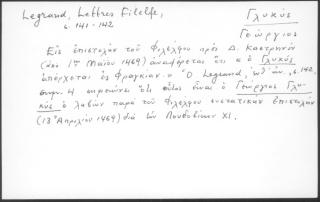 Legrand, Lettres Filelfe,
σ. 141-142
Γλυκύς
Γεώργιος
Εἰς ἐπιστολὴν τοῦ Φιλέλφου πρὸς Δ. Καστρηνὸν
(τῆς 1ης Μαΐου 1469) ἀναφέρεται ὅτι καὶ ὁ Γλυκύς
ἀπέρχεται εἰς Φραγκίαν. Ὁ Legrand, ἔνθ' ἀν., σ. 142,
σημ. 4 σημειώνει ὅτι οὗτος εἶναι ὁ Γεώργιος Γλυ-
κύς ὁ λαβὼν παρὰ τοῦ Φιλέλφου συστατικὴν ἐπιστολὴν
(13 Ἀπριλίου 1469) διὰ τὸν Λουδοβῖκον XI.